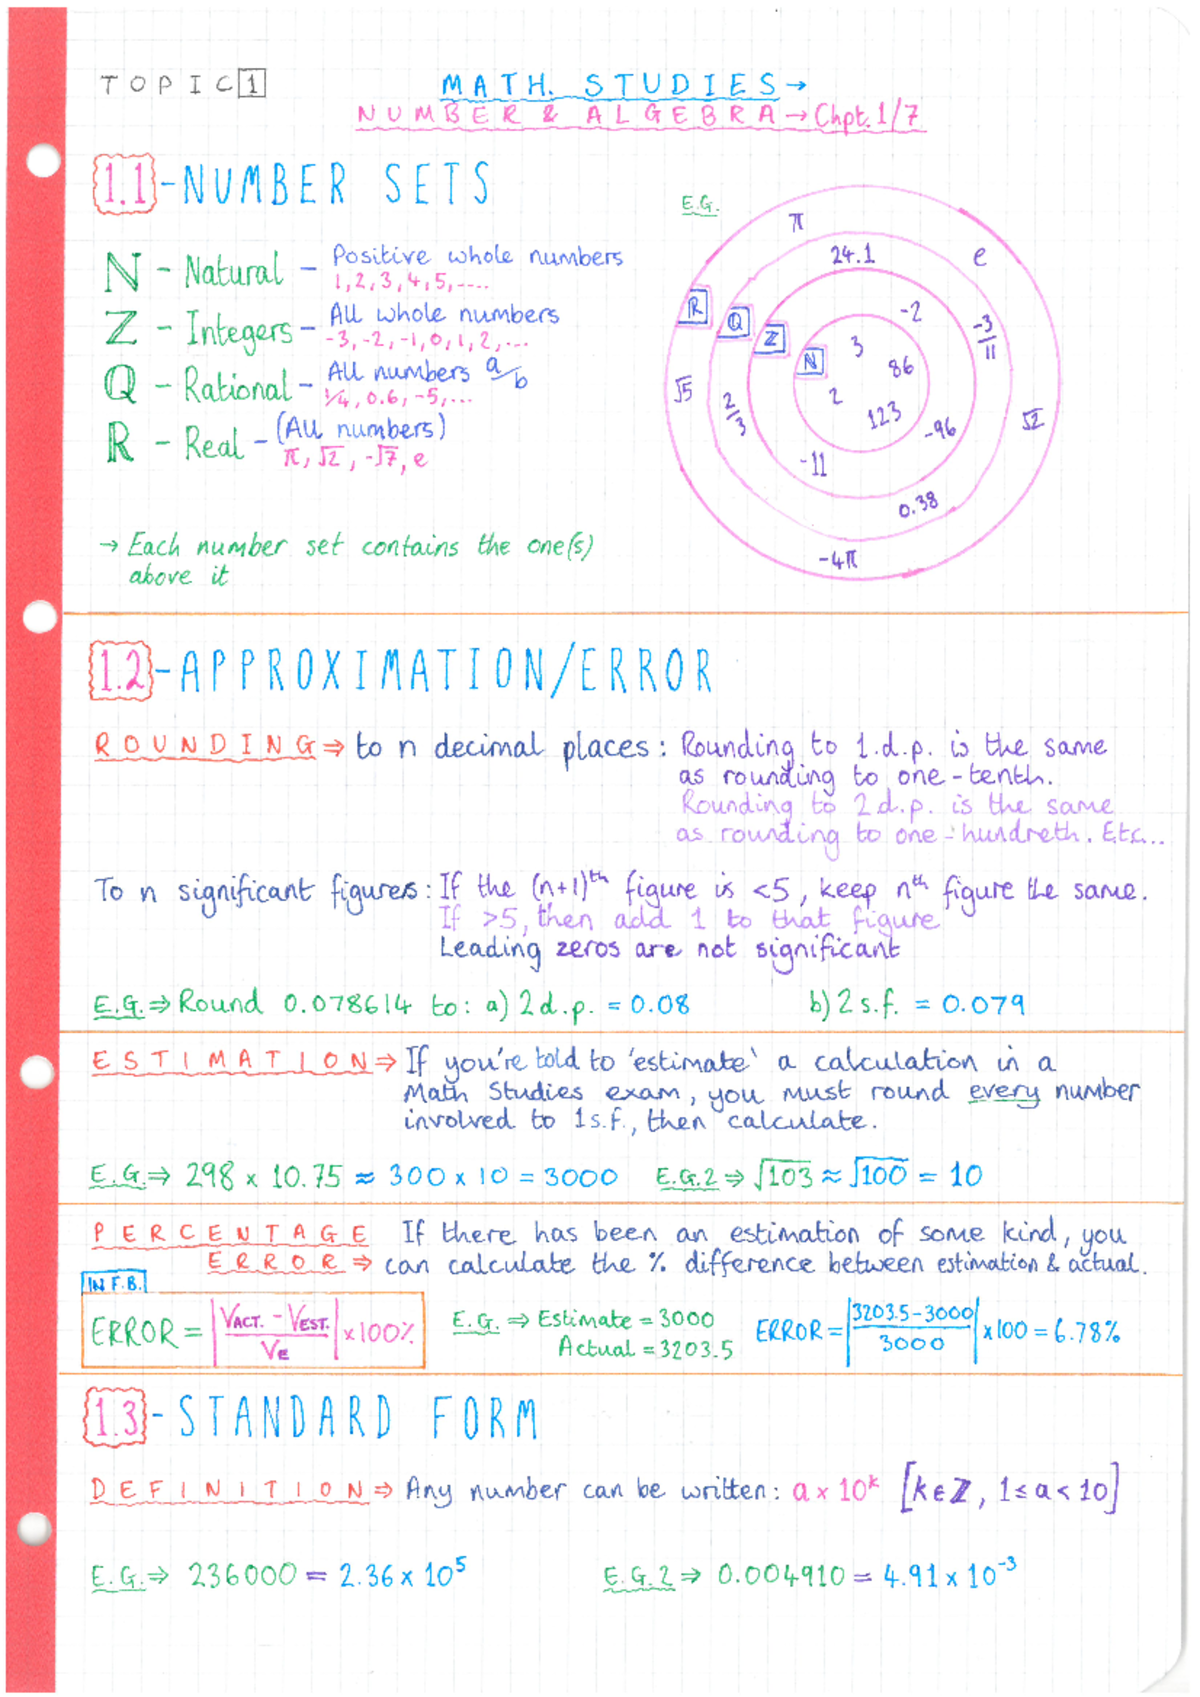 TOPIC 1
MATH. STUDIES→
NUMBER & ALGEBRA→Chpt.1/7
1.1-NUMBER SETS
ℕ - Natural - Positive whole numbers
1,2,3,4,5,....
ℤ - Integers - All whole numbers
-3,-2,-1,0,1,2,...
ℚ - Rational - All numbers a/b
1/4, 0.6, -5,...
ℝ - Real - (All numbers)
π, √2, -√7, e
→ Each number set contains the one(s)
above it
E.G.
π
24.1
e
ℝ
ℚ
ℤ
ℕ
-2
-3/11
3
86
√5
2/3
2
123
-96
√2
-11
0.38
-4π
1.2-APPROXIMATION/ERROR
ROUNDING⇒ to n decimal places: Rounding to 1.d.p. is the same
as rounding to one-tenth.
Rounding to 2d.p. is the same
as rounding to one-hundreth. Etc...
To n significant figures: If the (n+1)ᵗʰ figure is <5, keep nᵗʰ figure the same.
If >5, then add 1 to that figure
Leading zeros are not significant
E.G.⇒ Round 0.078614 to: a) 2d.p. = 0.08 b) 2 s.f. = 0.079
ESTIMATION⇒ If you're told to 'estimate' a calculation in a
Math Studies exam, you must round every number
involved to 1s.f., then calculate.
E.G.⇒ 298 x 10.75 ≈ 300 x 10 = 3000 E.G.2⇒ √103 ≈ √100 = 10
PERCENTAGE If there has been an estimation of some kind, you
ERROR⇒ can calculate the % difference between estimation & actual.
IN F.B.
ERROR = |VACT. - VEST. / Ve| x100%
E.G.⇒ Estimate = 3000
Actual = 3203.5
ERROR = |3203.5-3000 / 3000| x100 = 6.78%
1.3-STANDARD FORM
DEFINITION⇒ Any number can be written: a x 10ᵏ [k∈ℤ, 1≤a<10]
E.G.⇒ 236000 = 2.36 x 10⁵ E.G.2⇒ 0.004910 = 4.91 x 10⁻³